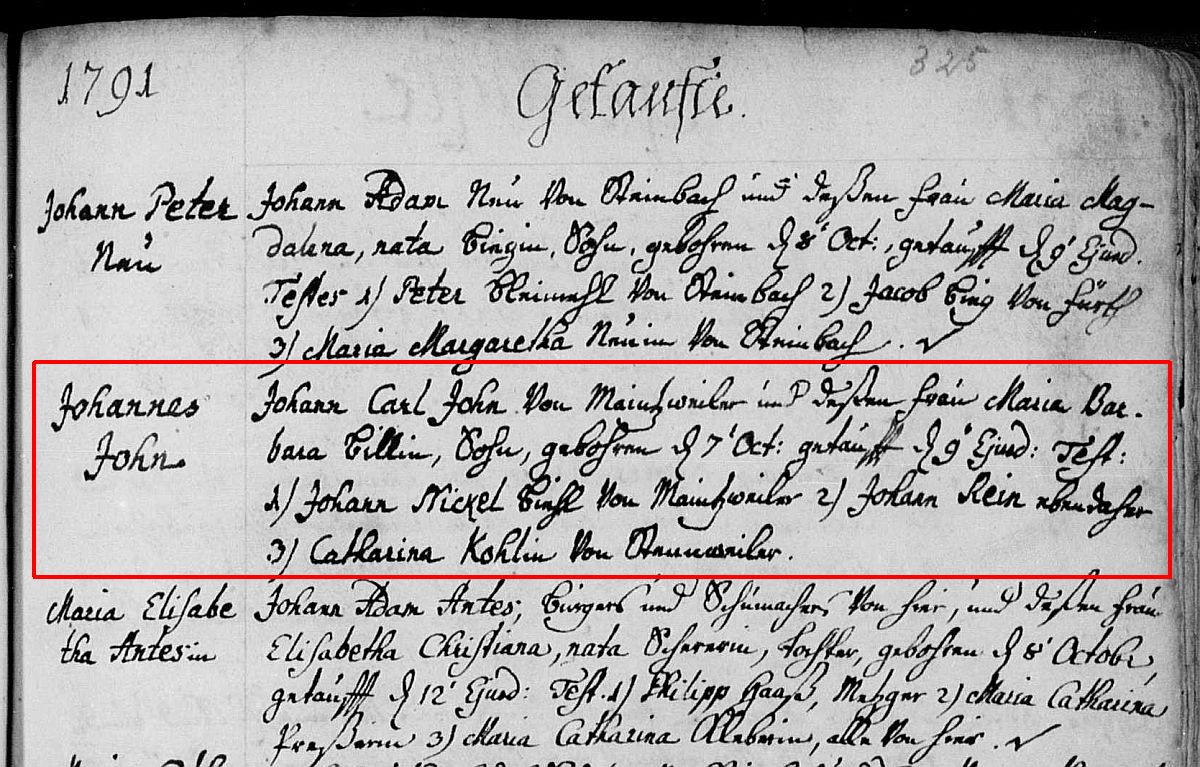 1791
Getaufte.
325
Johann Peter
Neu
Johann Adam Neu von Steinbach und deßen frau Maria Mag-
dalena, nata Bingin, Sohn, gebohren d 8t Oct:, getaufft d 9t Ejusd.
Testes 1) Peter Bleimehl von Steinbach 2) Jacob Bing von Fürth
3) Maria Margaretha Neuin von Steinbach.
Johannes
John.
Johann Carl John von Maintzweiler und deßen frau Maria Bar-
bara Billin, Sohn, gebohren d 7t Oct: getaufft d 9t Ejusd: Test:
1) Johann Nickel Biehl von Maintzweiler 2) Johann Rein ebendaher
3) Catharina Kohlin von Stennweiler.
Maria Elisabe
tha Antesin
Johann Adam Antes, Bürgers und Schumachers von hier, und deßen frau
Elisabetha Christiana, nata Schererin, Tochter, gebohren d 8t Octobr,
getaufft d 12t Ejusd: Test. 1) Philipp Haaß, Metzger 2) Maria Catharina
Preßerin 3) Maria Catharina, alle von hier.